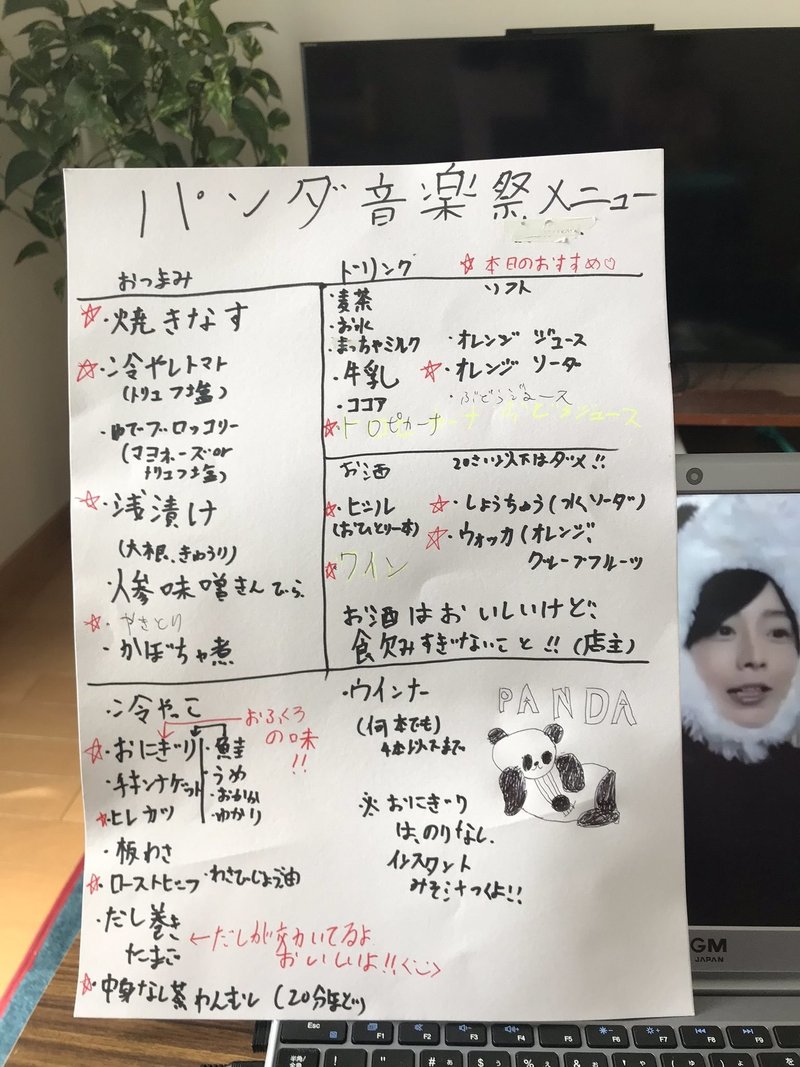 パンダ音楽祭メニュー
おつまみ
☆・焼きなす
☆・冷やしトマト
(トリュフ塩)
・ゆでブロッコリー
(マヨネーズor
トリュフ塩)
☆・浅漬け
(大根、きゅうり)
・人参味噌きんぴら
☆・やきとり
・かぼちゃ煮
ドリンク
☆本日のおすすめ♡
ソフト
・麦茶
・お水
・まっちゃミルク
・牛乳
・ココア
☆・トロピカーナ
・オレンジジュース
☆・オレンジソーダ
・ぶどうジュース
お酒
20さい以下はダメ!!
☆・ビール
(おひとり一本)
☆・ワイン
☆・しょうちゅう(水、ソーダ)
☆・ウォッカ(オレンジ、
グレープフルーツ
お酒はおいしいけど、
飲みすぎないこと!!(店主)
・冷やっこ
☆・おにぎり
おふくろ
の味
!!
・鮭
・うめ
・おかか
・ゆかり
・チキンナゲット
☆・ヒレカツ
・板わさ
☆・ローストビーフ・わさびじょう油
・だし巻き
たまご
←だしが効いてるよ
おいしいよ!!
☆・中身なし茶わんむし(20分ほど)
・ウインナー
(何本でも)
4本以上まで
※おにぎり
は、のりなし。
インスタント
みそ汁つくよ!!
PANDA
GM
JAPAN
Esc
F1
F2
F3
F4
F5
F6
F7
F8
F9
半角/
全角